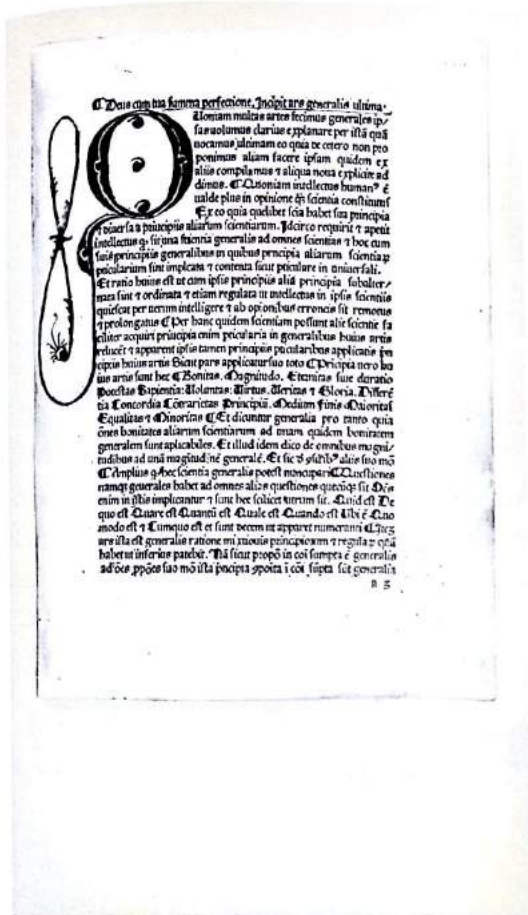 ¶ Deus cum tua summa perfectione. Incipit ars generalis ultima.
QUoniam multas artes fecimus generales ip/
sas uolumus clarius explanare per istã quã
uocamus ultimam eo quia de cetero non pro
ponimus aliam facere ipsam quidem ex
aliis compilamus ⁊ aliqua noua explicite ad
dimus. ¶ Quoniam intellectus humanꝰ ẽ
ualde plus in opinione q̃ȝ scientia constitutus
Ex eo quia quelibet scĩa habet sua principia
⁊ diuersa a principiis aliarum scientiarum. Idcirco requirit ⁊ apetit
intellectus ꝙ sit una scientia generalis ad omnes scientias ⁊ hoc cum
suis principiis generalibus in quibus prncipia aliarum scientiaꝝ
pticularium sint implicata ⁊ contenta sicut pticulare in uniuersali.
Et ratio huius est ut cum ipsis principiis alia principia subalter/
nata sint ⁊ ordinata ⁊ etiam regulata ut intellectus in ipsis scientiis
quiescat per uerum intelligere ⁊ ab opionibus erroneis sit remotus
⁊ prolongatus ¶ Per hanc quidem scientiam possunt alie scientie fa
ciliter acquiri principia enim pticularia in generalibus huius artis
relucẽt ⁊ apparent ipsis tamen principiis pticularibus applicatis prin
cipiis huius artis Sicut pars applicatur suo toto ¶ Pricipia uero hu
ius artis sunt hec ¶ Bonitas. Magnitudo. Eternitas siue duratio
Potestas Sapientia: Uoluntas: Uirtus. Ueritas ⁊ Gloria. Differẽ
tia Concordia Cõrarietas Principiũ. Medium Finis Maioritas
Equalitas ⁊ Minoritas ¶ Et dicuntur generalia pro tanto quia
õnes bonitates aliarum scientiarum ad unam quidem bonitatem
generalem sunt aplicabiles. Et illud idem dico de omnibus magni/
tudibus ad unã magitudinẽ generalẽ. Et sic de aliis suo mõ
¶ Amplius hec scientia generalis potest nuncipari ¶ Questiones
namqȝ generales habet ad omnes alias questiones quecũqȝ sit Oẽs
enim in istis implicantur ⁊ sunt hec scilicet utrum sit. Quid est De
quo est Quare est Quantũ est Quale est Quando est Ubi ẽ Quo
modo est ⁊ Cumquo est et sunt decem ut apparet numeranti
ars ista est generalis ratione principiorum ⁊ regulaꝝ
habet ut inferius patebit. Nã sicut propõ in coi sumpta ẽ generalis
ad oẽs ppões suo mõ ista pncipia ĩ cõi sũpta sũt generalia